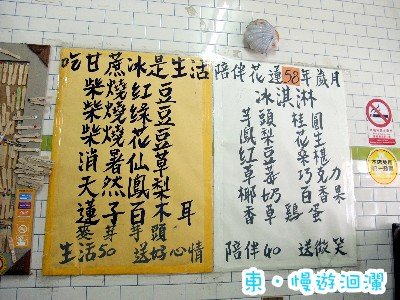 吃甘蔗冰是生活
柴燒紅豆
柴燒綠豆
柴燒花豆
消暑仙草
天然鳳梨
蓮子百木耳
麥芽芋頭
生活50 送好心情
陪伴花蓮58年歲月
冰淇淋
芋頭 桂圓
鳳梨 花生
紅豆 桑椹
草莓 巧克力
椰奶 百香果
香草 雞蛋
陪伴40 送微笑
東‧慢遊洄瀾